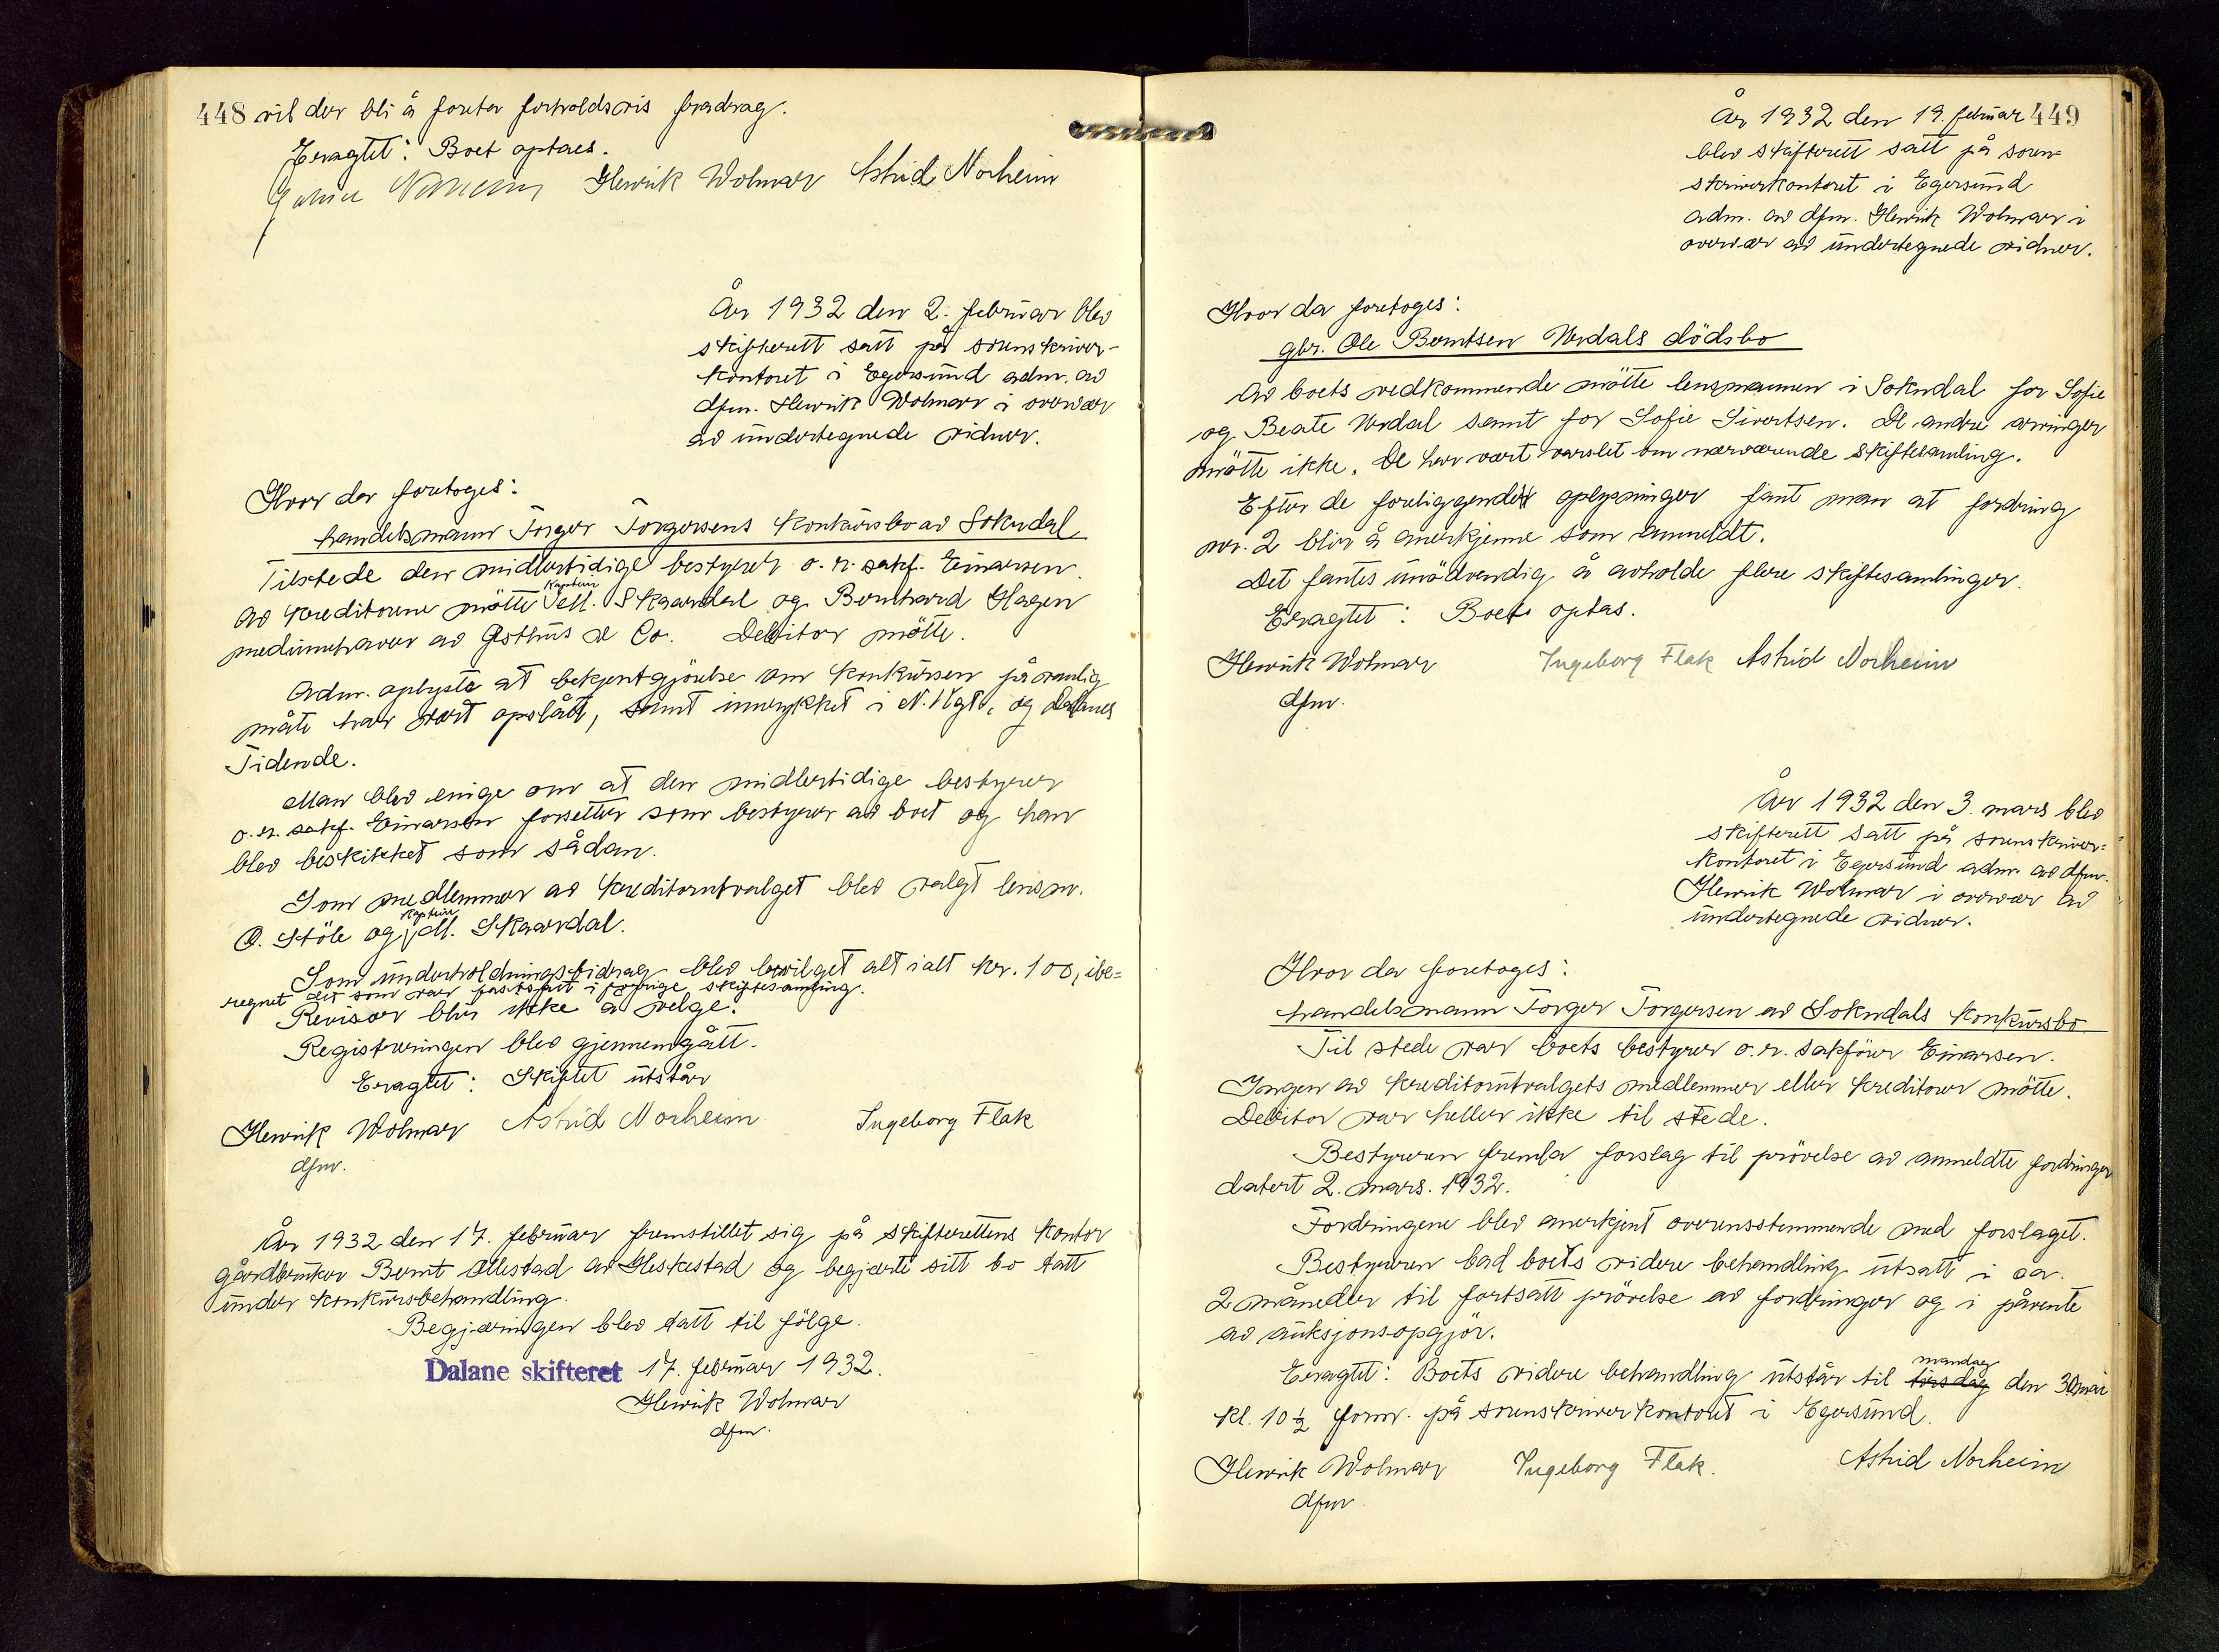 448 vil der bli å foreta forholdsvis fradrag.
Eragtet: Boet optaes.
Henrik Wolmar Astrid Norheim
År 1932 den 2. februar blev
skifterett satt på sorenskriver-
kontoret i Egersund adm. av
dfm. Henrik Wolmar i overvær
av undertegnede vidner.
Hvor da foretoges:
handelsmann Torger Torgersens konkursbo av Sokndal
Tilstede den midlertidige bestyrer o.r. sakf. Einarsen.
Av kreditorene møtte kaptein M. Skaardal og Bernhard Hagen
medinnehaver av Østhus & Co. Debitor møtte.
Adm. oplyste at bekjentgjørelse om konkursen på vanlig
måte har vært opslått, samt innrykket i N. Kgt. og Dalanes
Tidende.
Man blev enige om at den midlertidige bestyrer
o.r. sakf. Einarsen forsetter som bestyrer av boet og han
blev beskikket som sådan.
Som medlemmer av kreditorutvalget blev valgt lensm.
O. Støle og kaptein M. Skaardal.
Som underholdningsbidrag blev bevilget alt ialt kr. 100, ibe-
regnet det som var fastsatt i forrige skiftesamling.
Revisor blir ikke å velge.
Registreringen blev gjennemgått.
Eragtet: Skiftet utstår
Henrik Wolmar Astrid Norheim Ingeborg Flak
dfm.
År 1932 den 17. februar fremstillet sig på skifterettens kontor
gårdbruker Bernt Ollestad av Heskestad og begjærte sitt bo tatt
under konkursbehandling.
Begjæringen blev tatt til følge.
Dalane skifteret 17. februar 1932.
Henrik Wolmar
dfm.
År 1932 den 19. februar 449
blev skifterett satt på soren-
skriverkontoret i Egersund
adm. av dfm. Henrik Wolmar i
overvær av undertegnede vidner.
Hvor da foretoges:
gbr. Ole Berntsen Urdals dødsbo
Av boets vedkommende møtte lensmannen i Sokndal for Sofie
og Beate Urdal samt for Sofie Sivertsen. De andre arvinger
møtte ikke. De har vært varslet om nærværende skiftesamling.
Efter de foreliggende oplysninger fant man at fordring
nr. 2 blir å anerkjenne som anmeldt.
Det fantes unødvendig å avholde flere skiftesamlinger.
Eragtet: Boet optas.
Henrik Wolmar Ingeborg Flak Astrid Norheim
dfm.
År 1932 den 3. mars blev
skifterett satt på sorenskriver-
kontoret i Egersund adm. av dfm.
Henrik Wolmar i overvær av
undertegnede vidner.
Hvor da foretoges:
handelsmann Torger Torgersen av Sokndals konkursbo
Til stede var boets bestyrer o.r. sakfører Einarsen.
Ingen av kreditorutvalgets medlemmer eller kreditorer møtte.
Debitor var heller ikke til stede.
Bestyreren fremla forslag til prøvelse av anmeldte fordringer
datert 2. mars. 1932.
Fordringene blev anerkjent overensstemmende med forslaget.
Bestyreren bad boets videre behandling utsatt i ca.
2 måneder til fortsatt prøvelse av fordringer og i påvente
av auksjonsopgjør.
Eragtet: Boets videre behandling utstår til tirsdag mandag den 30 mai
kl. 10½ form. på sorenskriverkontoret i Egersund.
Henrik Wolmar Ingeborg Flak. Astrid Norheim
dfm.